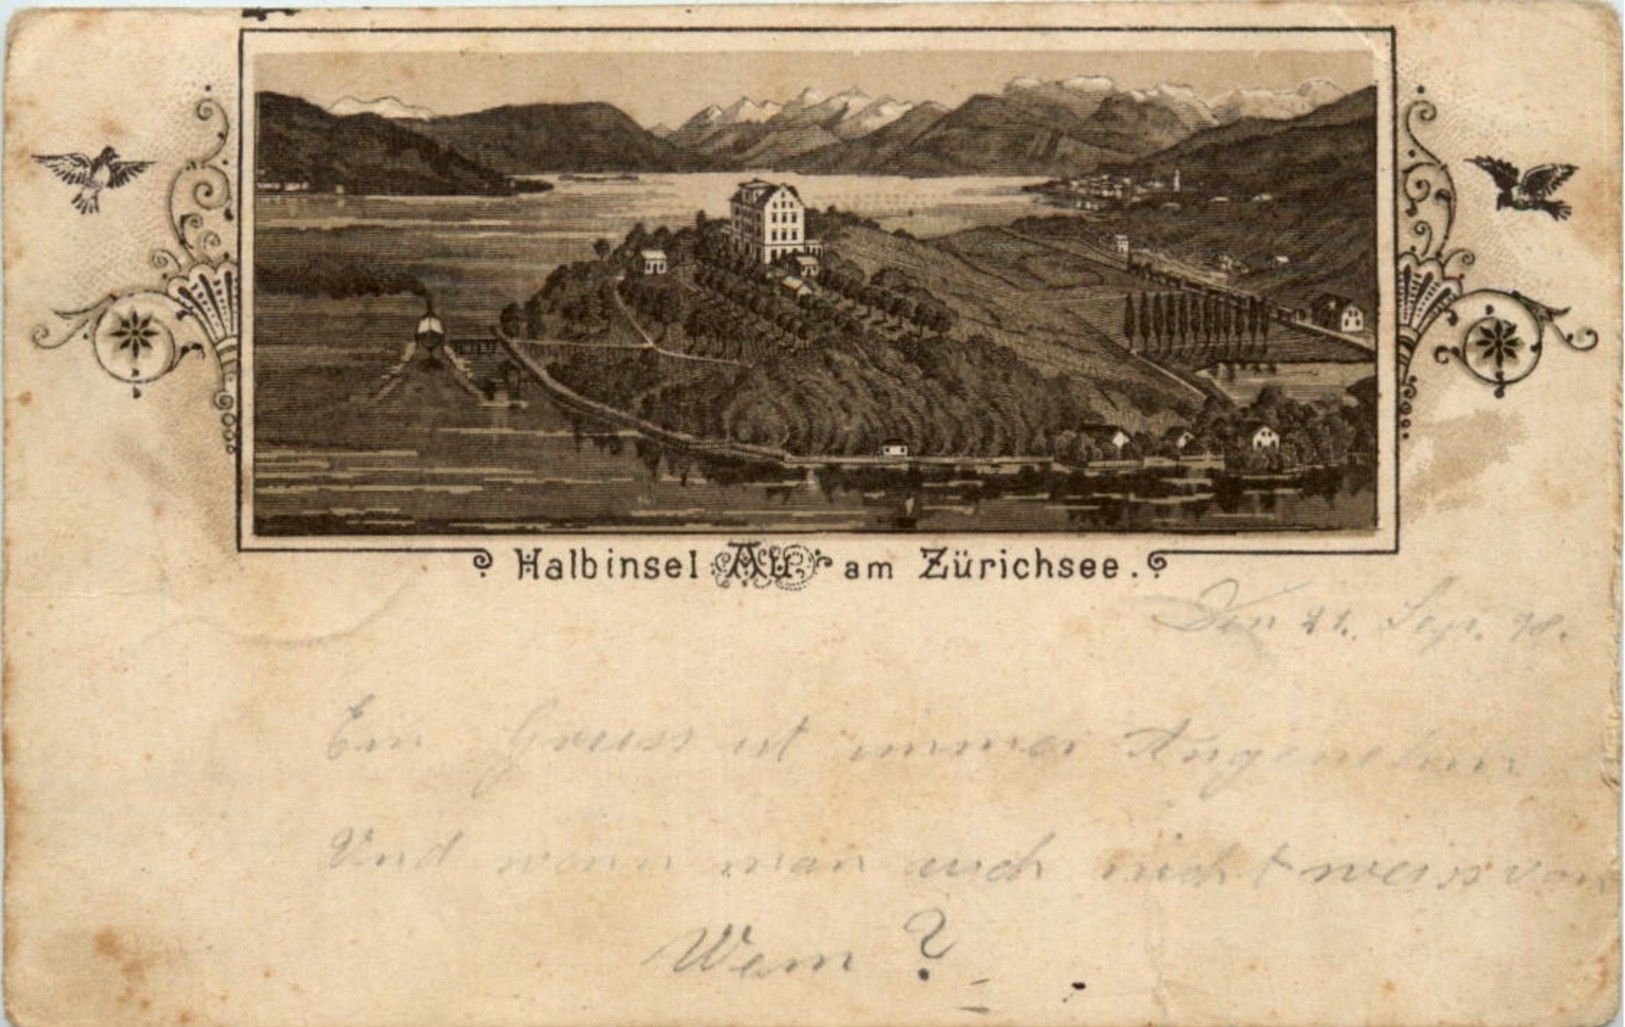 Halbinsel Au am Zürichsee.
Den 21. Sep. 98.
Ein Gruss ist immer Angenehm
Und wenn man auch nicht weiss von
Wem?